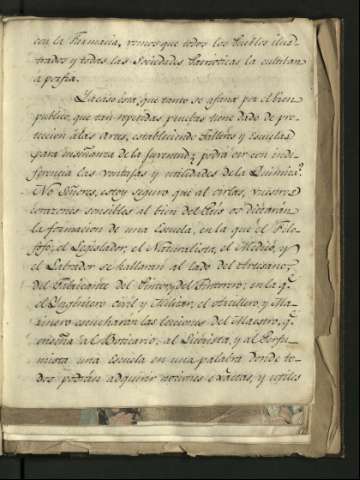 con la Farmacia, vemos que todos los Pueblos ilus-
trados y todas las Sociedades Patrioticas la cultivan
a porfia.
que tanto se afana por el bien
publico, que tan repetidas pruebas tiene dado de pro-
teccion á las artes, estableciendo Talleres y escuelas
para enseñanza de la Juventud; podrá oir con indi-
ferencia las ventajas y utilidades de la Quimica?
No Señores, estoy seguro que al oirlas, vuestros
corazones sensibles al bien del País os dictarán
la formacion de una Escuela, en la que el Filo-
sofo, el Legislador, el Naturalista, el Medico, y
el Labrador se hallarán al lado del Artesano,
del Fabricante del Pintor, y del Tintorero; en la q.e
el Inghiniero civil y Militar, el Artillero y Ma-
rinero escucharán las lecciones del Maestro, q.e
enseña al Boticario, al Licorista, y al Perfu-
mista una escuela en una palabra donde to-
dos podrán adquirir nociones exactas, y utiles